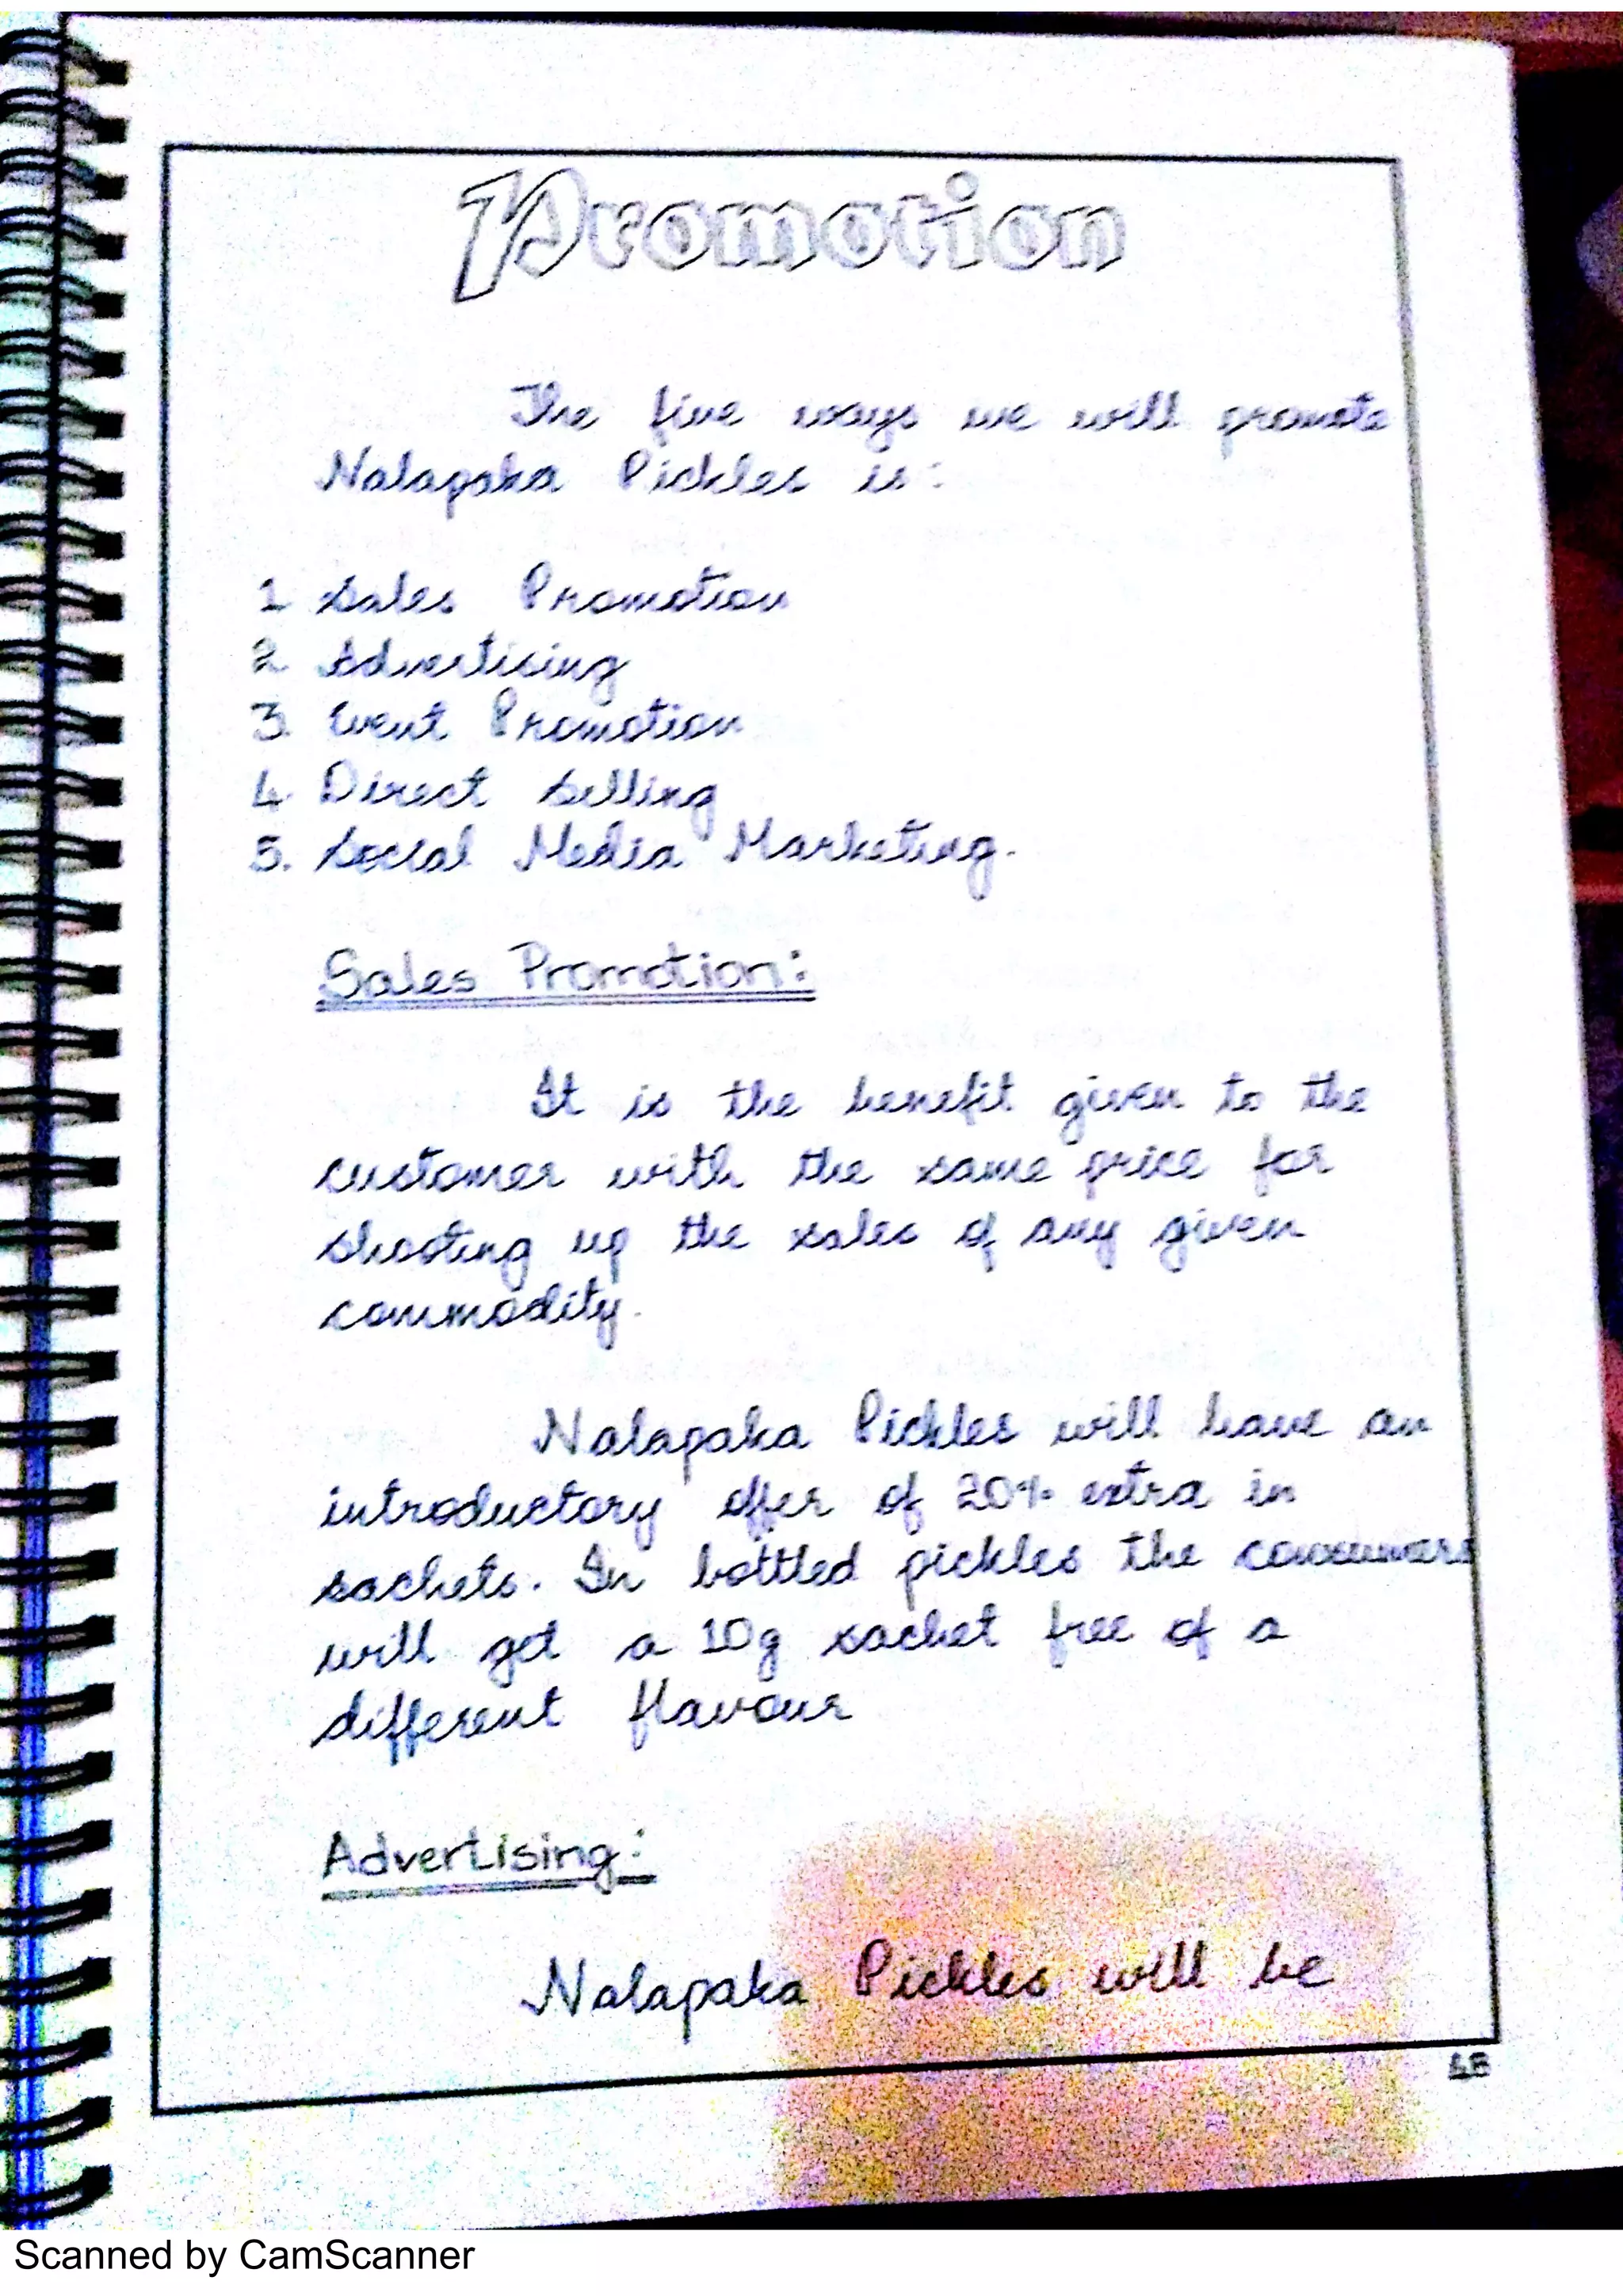 Promotion
The five ways we will promote
Nalapaka Pickles is:
1 Sales Promotion
2 Advertising
3. Event Promotion
4 Direct Selling
5. Social Media Marketing.
Sales Promotion:
It is the benefit given to the
customer with the same price for
shooting up the sales of any given
commodity.
Nalapaka Pickles will have an
introductory offer of 20% extra in
sachets. In bottled pickles the consumers
will get a 10g sachet free of a
different flavour
Advertising:
Nalapaka Pickles will be
Scanned by CamScanner